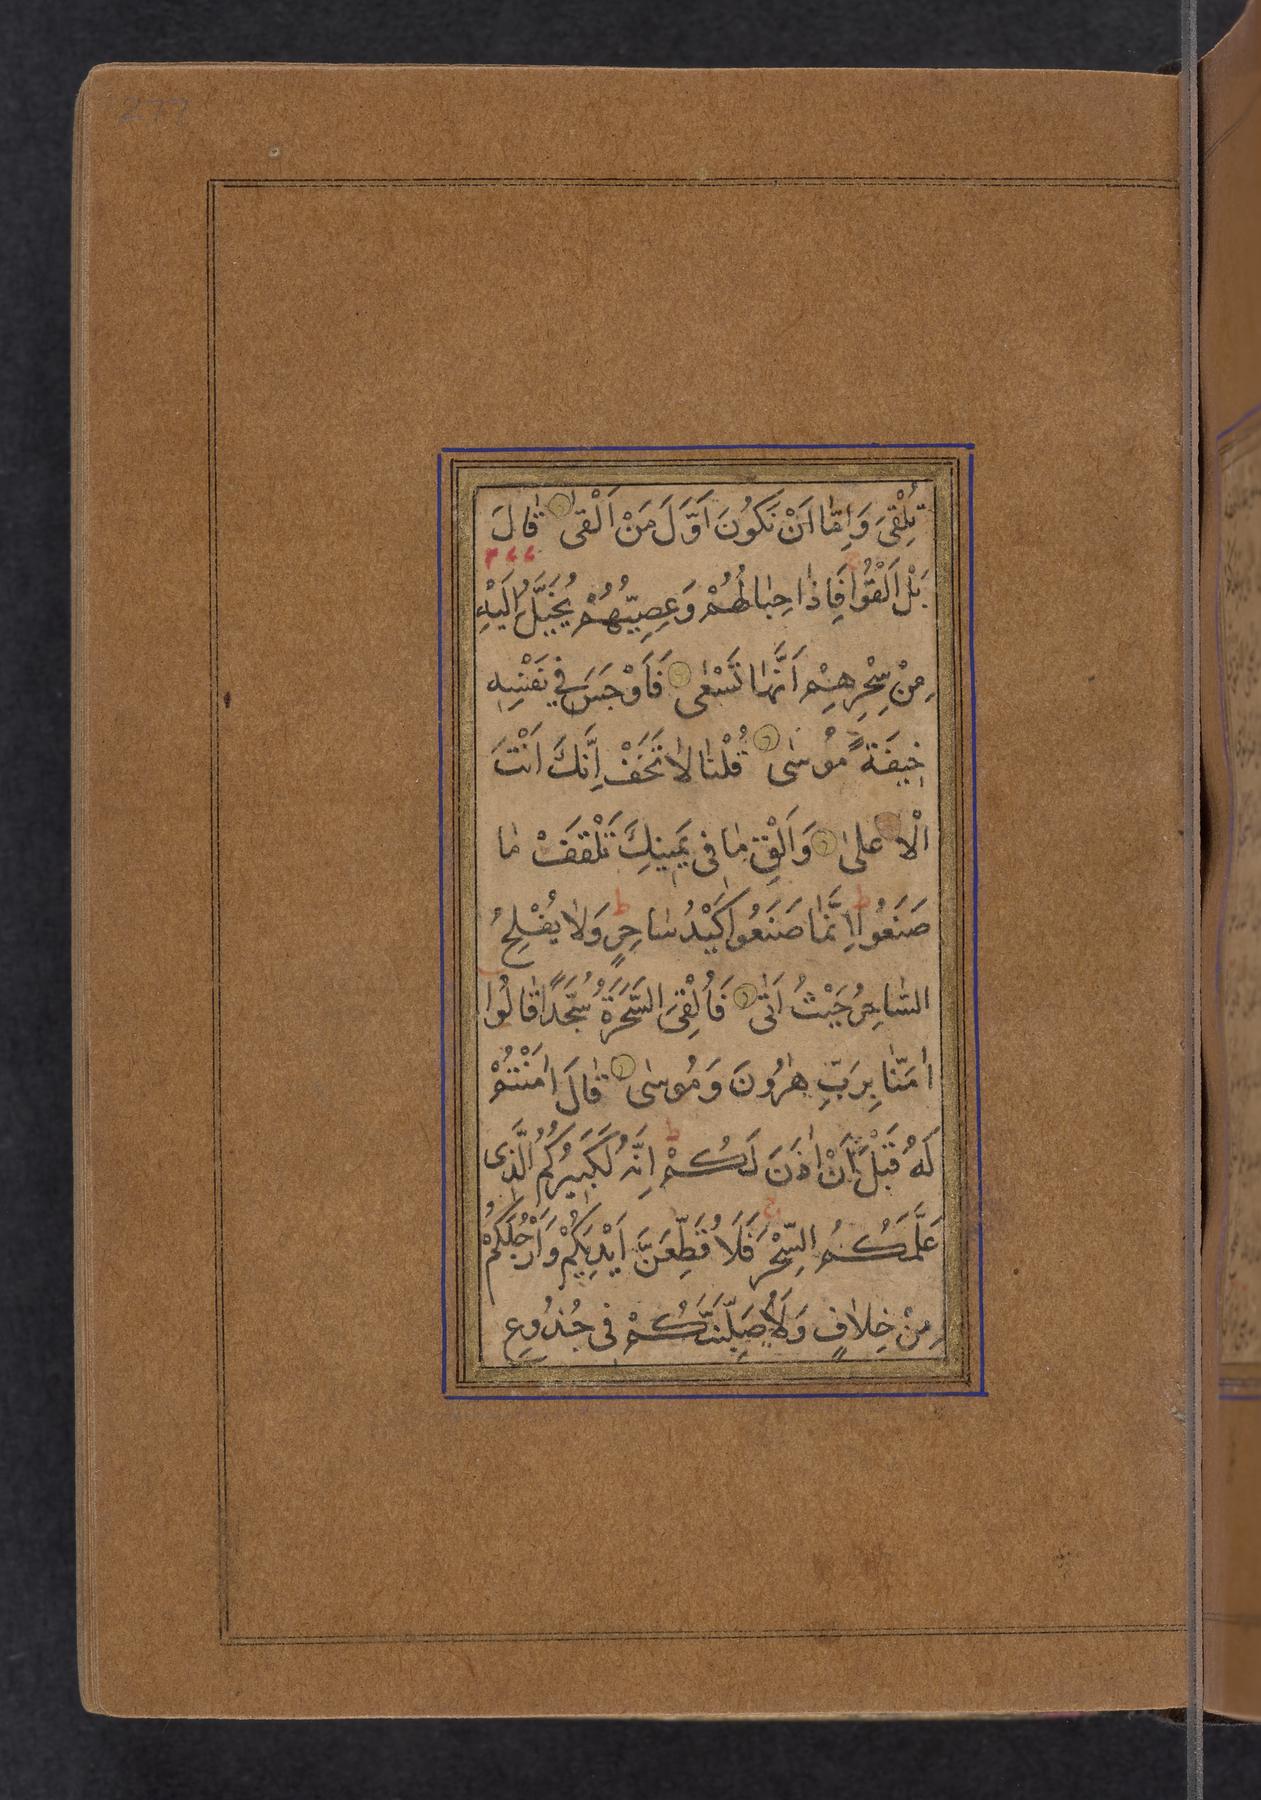 277
تُلْقِىَ وَاِمّٰا اَنْ نَكُونَ اَوَّلَ مَنْ اَلْقىٰ قٰالَ
بَلْ اَلْقُوا فَاِذٰا حِبٰالُهُمْ وَعِصِيُّهُمْ يُخَيَّلُ اِلَيْهِ
مِنْ سِحْرِهِمْ اَنَّهٰا تَسْعٰى فَاَوْجَسَ فِي نَفْسِهِ
خِيفَةً مُوسٰى قُلْنٰا لاٰ تَخَفْ اِنَّكَ اَنْتَ
الْاَعلىٰ وَاَلْقِ مٰا فى يَمِينِكَ تَلْقَفْ مٰا
صَنَعُوا اِنَّمٰا صَنَعُوا كَيْدُ سٰاحِرٍ وَلاٰ يُفْلِحُ
السّٰاحِرُ حَيْثُ اَتٰى فَاُلْقِىَ السَّحَرَةُ سُجَّدًا قٰالُوا
اٰمَنّٰا بِرَبِّ هٰرُونَ وَمُوسٰى قٰالَ اٰمَنْتُمْ
لَهُ قَبْلَ اَنْ اٰذَنَ لَكُمْ اِنَّهُ لَكَبِيرُكُمُ الَّذِى
عَلَّمَكُمُ السِّحْرَ فَلَاُقَطِّعَنَّ اَيْدِيَكُمْ وَاَرْجُلَكُمْ
مِنْ خِلاٰفٍ وَلَاُصَلِّبَنَّكُمْ فى جُذُوعِ